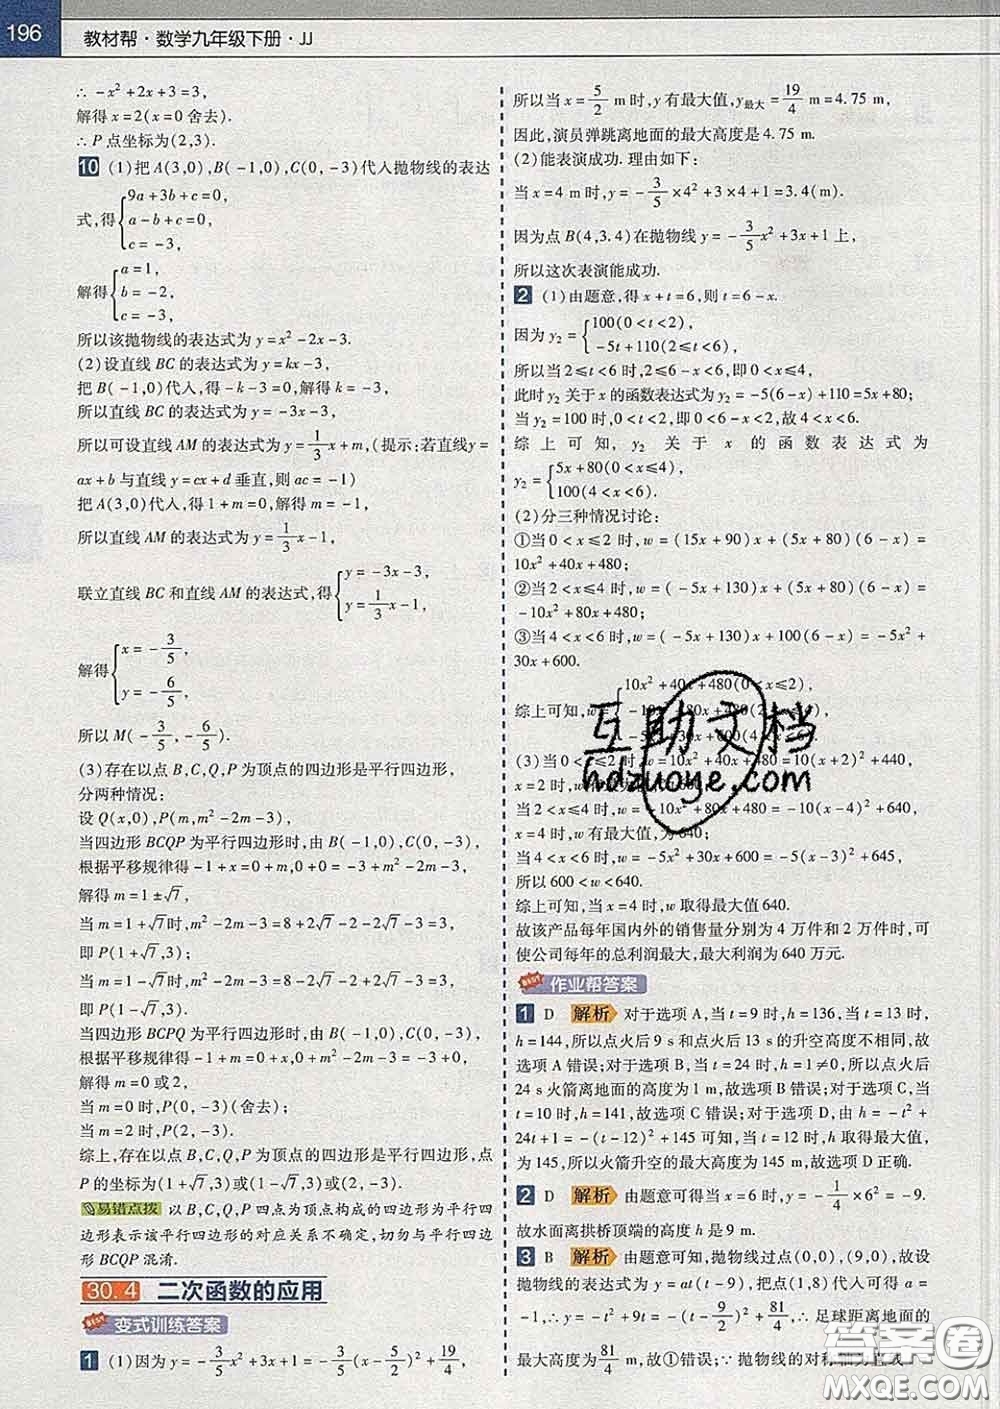 196
教材帮·数学九年级下册·JJ
∴ -x²+2x+3=3,
解得 x=2(x=0 舍去).
∴ P 点坐标为(2,3).
10 (1)把 A(3,0),B(-1,0),C(0,-3)代入抛物线的表达
式,得{9a+3b+c=0, a-b+c=0, c=-3,
解得{a=1, b=-2, c=-3,
所以该抛物线的表达式为 y=x²-2x-3.
(2)设直线 BC 的表达式为 y=kx-3,
把 B(-1,0)代入,得 -k-3=0,解得 k=-3,
所以直线 BC 的表达式为 y=-3x-3,
所以可设直线 AM 的表达式为 y=1/3x+m,(提示:若直线 y=
ax+b 与直线 y=cx+d 垂直,则 ac=-1)
把 A(3,0)代入,得 1+m=0,解得 m=-1,
所以直线 AM 的表达式为 y=1/3x-1,
联立直线 BC 和直线 AM 的表达式,得{y=-3x-3, y=1/3x-1,
解得{x=-3/5, y=-6/5,
所以 M(-3/5,-6/5).
(3)存在以点 B,C,Q,P 为顶点的四边形是平行四边形,
分两种情况:
设 Q(x,0),P(m,m²-2m-3),
当四边形 BCQP 为平行四边形时,由 B(-1,0),C(0,-3),
根据平移规律得 -1+x=0+m,0+0=-3+m²-2m-3,
解得 m=1±√7,
当 m=1+√7时,m²-2m-3=8+2√7-2-2√7-3=3,
即 P(1+√7,3).
当 m=1-√7时,m²-2m-3=8-2√7-2+2√7-3=3,
即 P(1-√7,3).
当四边形 BCPQ 为平行四边形时,由 B(-1,0),C(0,-3),
根据平移规律得 -1+m=0+x,0+m²-2m-3=-3+0,
解得 m=0 或 2,
当 m=0 时,P(0,-3)(舍去);
当 m=2 时,P(2,-3).
综上,存在以点 B,C,Q,P 为顶点的四边形是平行四边形,点
P 的坐标为(1+√7,3)或(1-√7,3)或(2,-3).
易错点拨 以 B,C,Q,P 四点为顶点构成的四边形为平行四
边形表示该平行四边形的对应关系不确定,切勿与平行四边
形 BCQP 混淆.
30.4 二次函数的应用
变式训练答案
1 (1)因为 y=-3/5x²+3x+1=-3/5(x-5/2)²+19/4,
所以当 x=5/2 m时,y 有最大值,y最大=19/4 m=4.75 m,
因此,演员弹跳离地面的最大高度是 4.75 m.
(2)能表演成功. 理由如下:
当 x=4 m 时,y=-3/5×4²+3×4+1=3.4(m).
因为点 B(4,3.4)在抛物线 y=-3/5x²+3x+1上,
所以这次表演能成功.
2 (1)由题意,得 x+t=6,则 t=6-x.
因为 y₂={100(0<t<2), -5t+110(2≤t<6),
所以当 2≤t<6 时,2≤6-x<6,即 0<x≤4,
此时 y₂ 关于 x 的函数表达式为 y₂=-5(6-x)+110=5x+80;
当 y₂=100 时,0<t<2,即 0<6-x<2,故 4<x<6.
综上可知,y₂ 关于 x 的函数表达式为
y₂={5x+80(0<x≤4), 100(4<x<6).
(2)分三种情况讨论:
①当 0<x≤2 时,w=(15x+90)x+(5x+80)(6-x)=
10x²+40x+480;
②当 2<x≤4 时,w=(-5x+130)x+(5x+80)(6-x)=
-10x²+80x+480;
③当 4<x<6 时,w=(-5x+130)x+100(6-x)=-5x²+
30x+600.
综上可知,w={10x²+40x+480(0<x≤2), -10x²+80x+480(2<x≤4), -5x²+30x+600(4<x<6).
(3)当 0<x≤2 时,w=10x²+40x+480=10(x+2)²+440,
x=2 时,w 有最大值,为 600;
当 2<x≤4 时,w=-10x²+80x+480=-10(x-4)²+640,
x=4 时,w 有最大值,为 640;
当 4<x<6 时,w=-5x²+30x+600=-5(x-3)²+645,
所以 600<w<640.
综上可知,当 x=4 时,w 取得最大值 640.
故该产品每年国内外的销售量分别为 4 万件和 2 万件时,可
使公司每年的总利润最大,最大利润为 640 万元.
作业帮答案
1 D 解析 对于选项 A,当 t=9 时,h=136,当 t=13 时,
h=144,所以点火后 9 s 和点火后 13 s 的升空高度不相同,故
选项 A 错误;对于选项 B,当 t=24 时,h=1≠0,所以点火后
24 s 火箭离地面的高度为 1 m,故选项 B 错误;对于选项 C,当
t=10 时,h=141,故选项 C 错误;对于选项 D,由 h=-t²+
24t+1=-(t-12)²+145 可知,当 t=12 时,h 取得最大值,
为 145,所以火箭升空的最大高度为 145 m,故选项 D 正确.
2 D 解析 由题意可得当 x=6 时,y=-1/4×6²=-9.
故水面离拱桥顶端的高度 h 是 9 m.
3 B 解析 由题意可知,抛物线过点(0,0),(9,0),故设
抛物线的表达式为 y=at(t-9),把点(1,8)代入可得 a=
-1,∴ y=-t²+9t=-(t-9/2)²+81/4,∴ 足球距离地面的
最大高度为81/4 m,故①错误;∵ 抛物线的对称轴为直线
互助文档
hdzuoye.com
答案圈
MXQE.COM